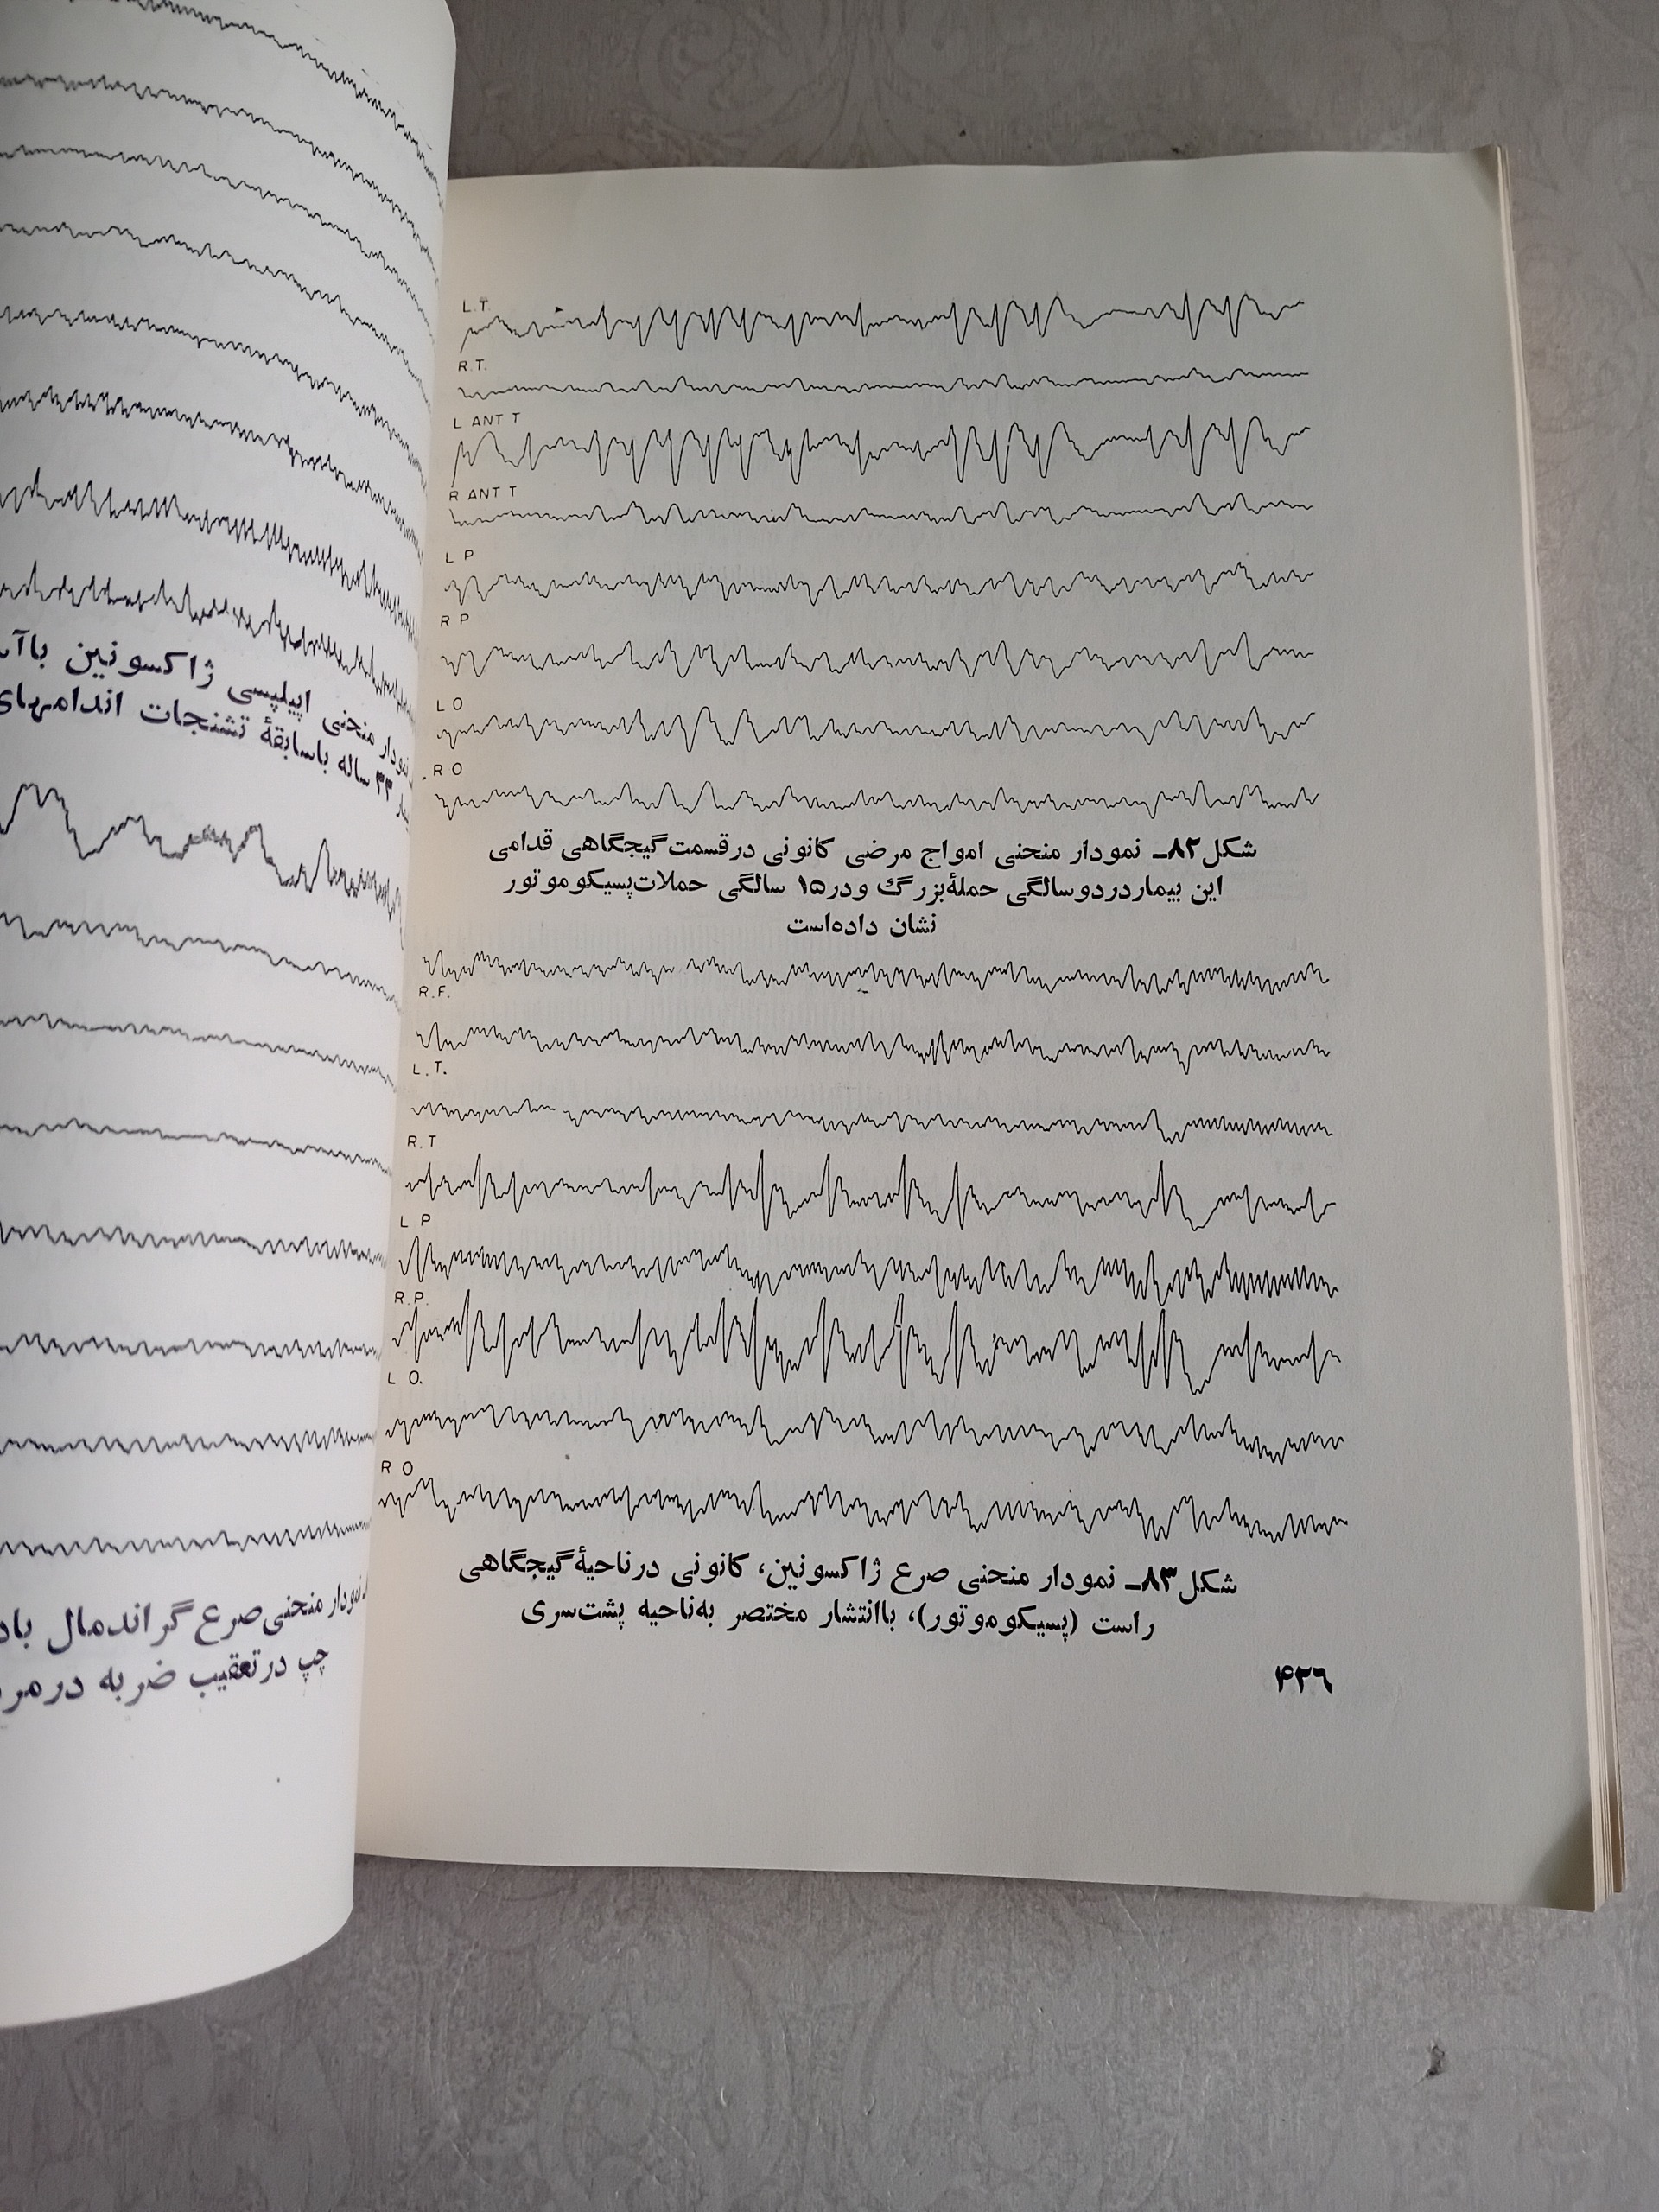 L.T.
R.T.
L ANT T
R ANT T
L P
R P
L O
R O
شکل۸۲ـ نمودار منحنی امواج مرضی کانونی درقسمت گیجگاهی قدامی
این بیماردردوسالگی حملهٔ بزرگ ودر۱۵ سالگی حملات پسیکوموتور
نشان داده‌است
R.F.
L.T.
R.T
L P
R.P.
L O.
R O
شکل۸۳ـ نمودار منحنی صرع ژاکسونین، کانونی درناحیهٔ گیجگاهی
راست (پسیکوموتور)، باانتشار مختصر به‌ناحیه پشت‌سری
۴۲۶
نمودار منحنی اپیلپسی ژاکسونین
۳۳ ساله باسابقهٔ تشنجات اندامهای
نمودار منحنی صرع گراندمال
چپ درتعقیب ضربه